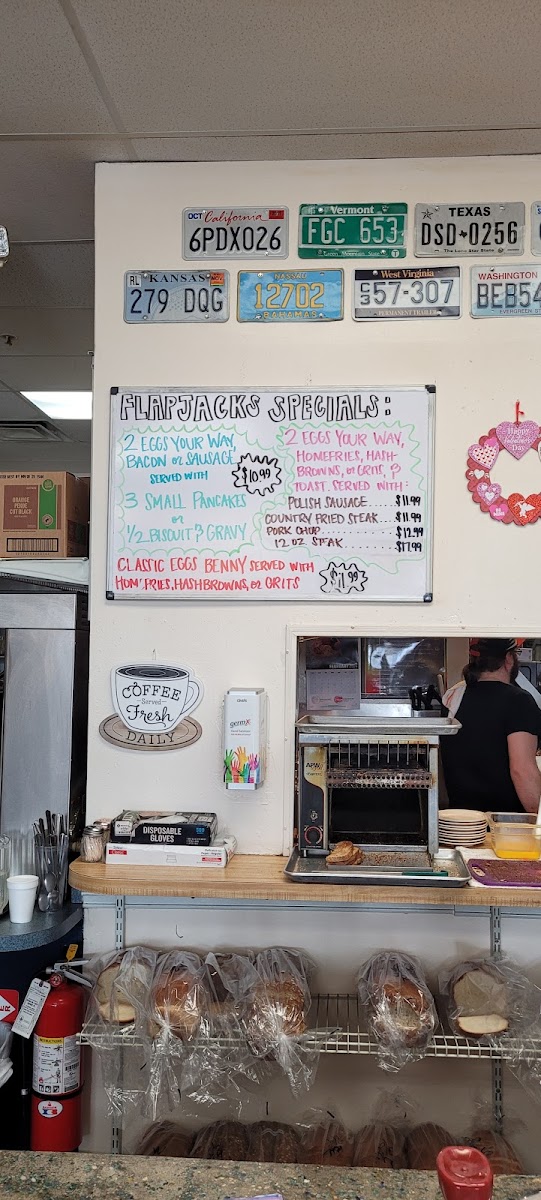 OCT California
6PDX026
Vermont
FGC 653
Green Mountain State
TEXAS
DSD 0256
The Lone Star State
KANSAS
279 DQG
NASSAU
12702
BAHAMAS
West Virginia
C3 57-307
PERMANENT TRAILER
WASHINGTON
BEB54
EVERGREEN
FLAPJACKS SPECIALS:
2 EGGS YOUR WAY,
BACON or SAUSAGE
SERVED WITH
$10.99
3 SMALL PANCAKES
or
1/2 BISCUIT & GRAVY
2 EGGS YOUR WAY,
HOMEFRIES, HASH-
BROWNS, or GRITS, &
TOAST. SERVED WITH:
POLISH SAUSAGE.....$11.99
COUNTRY FRIED STEAK...$11.99
PORK CHOP..............$12.99
12 OZ STEAK..............$17.99
CLASSIC EGGS BENNY SERVED WITH
HOM' FRIES, HASHBROWNS, or GRITS
$11.99
Happy
Valentine's
Day
COFFEE
Served
Fresh
DAILY
germ
DISPOSABLE
GLOVES